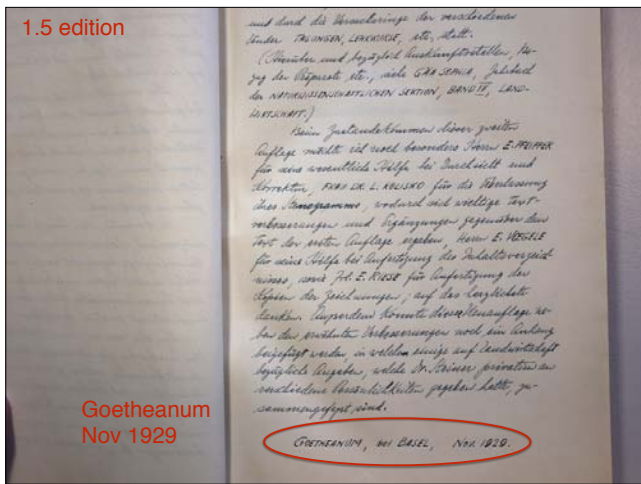 1.5 edition
und durch die Versuchsringe der verschiedenen
Länder TAGUNGEN, LEHRKURSE, etc. statt.
(Hierüber und bezüglich Auskunftstellen, Be-
zug der Präparate etc., siehe GÄA SOPHIA, Jahrbuch
der NATURWISSENSCHAFTLICHEN SEKTION, BAND IV, LAND-
WIRTSCHAFT.)
Beim Zustandekommen dieser zweiten
Auflage möchte ich noch besonders Herrn E. PFEIFFER
für seine wesentliche Hilfe bei Durchsicht und
Korrektur, FRAU DR. L. KOLISKO für die Überlassung
ihres Stenogramms, wodurch sich wichtige Text-
verbesserungen und Ergänzungen gegenüber dem
Text der ersten Auflage ergeben, Herrn E. VŒGELE
für seine Hilfe bei Anfertigung des Inhaltsverzeich-
nisses, sowie Frl. E. RIESE für Anfertigung der
Kopien der Zeichnungen; auf das herzlichste
danken. Ausserdem konnte dieser Neuauflage ne-
ben den erwähnten Verbesserungen noch ein Anhang
beigefügt werden, in welchem einige auf Landwirtschaft
bezügliche Angaben, welche Dr. Steiner privatim an
verschiedene Persönlichkeiten gegeben hatte, zu-
sammengefasst sind.
Goetheanum
Nov 1929
GOETHEANUM, bei BASEL, Nov. 1929.